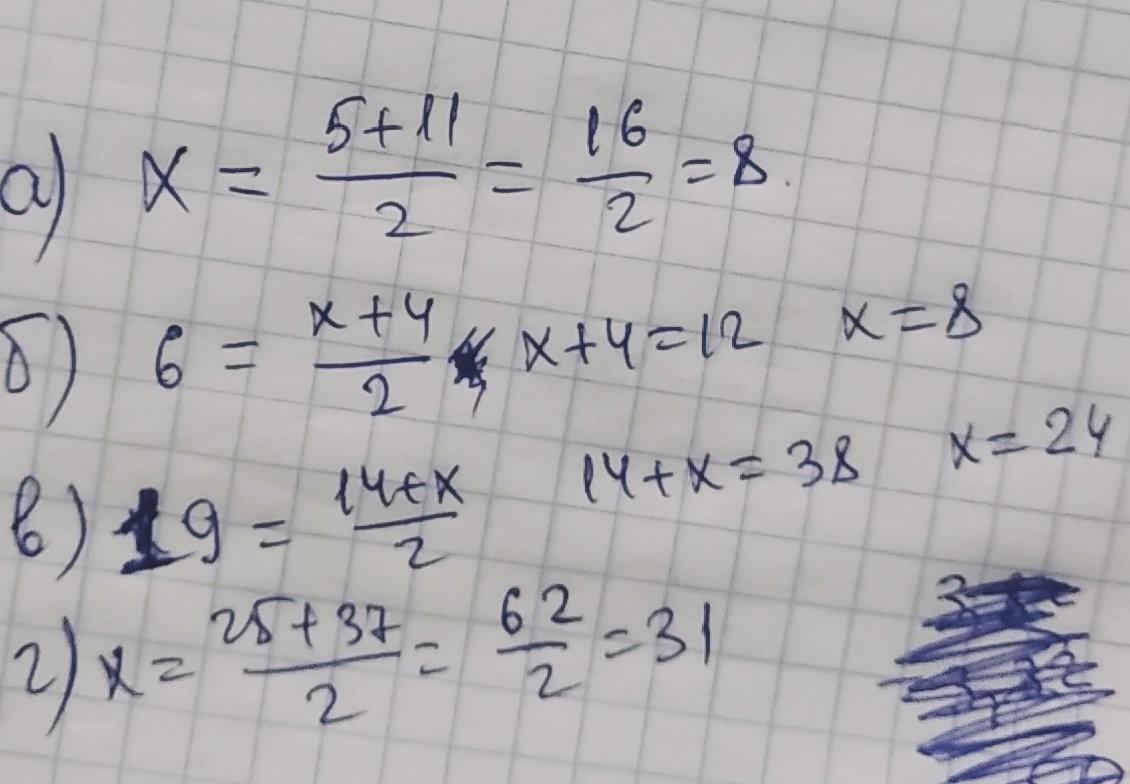 а) x = (5+11)/2 = 16/2 = 8.
б) 6 = (x+4)/2 x+4=12 x=8
в) 19 = (14+x)/2 14+x=38 x=24
г) x = (25+37)/2 = 62/2 = 31